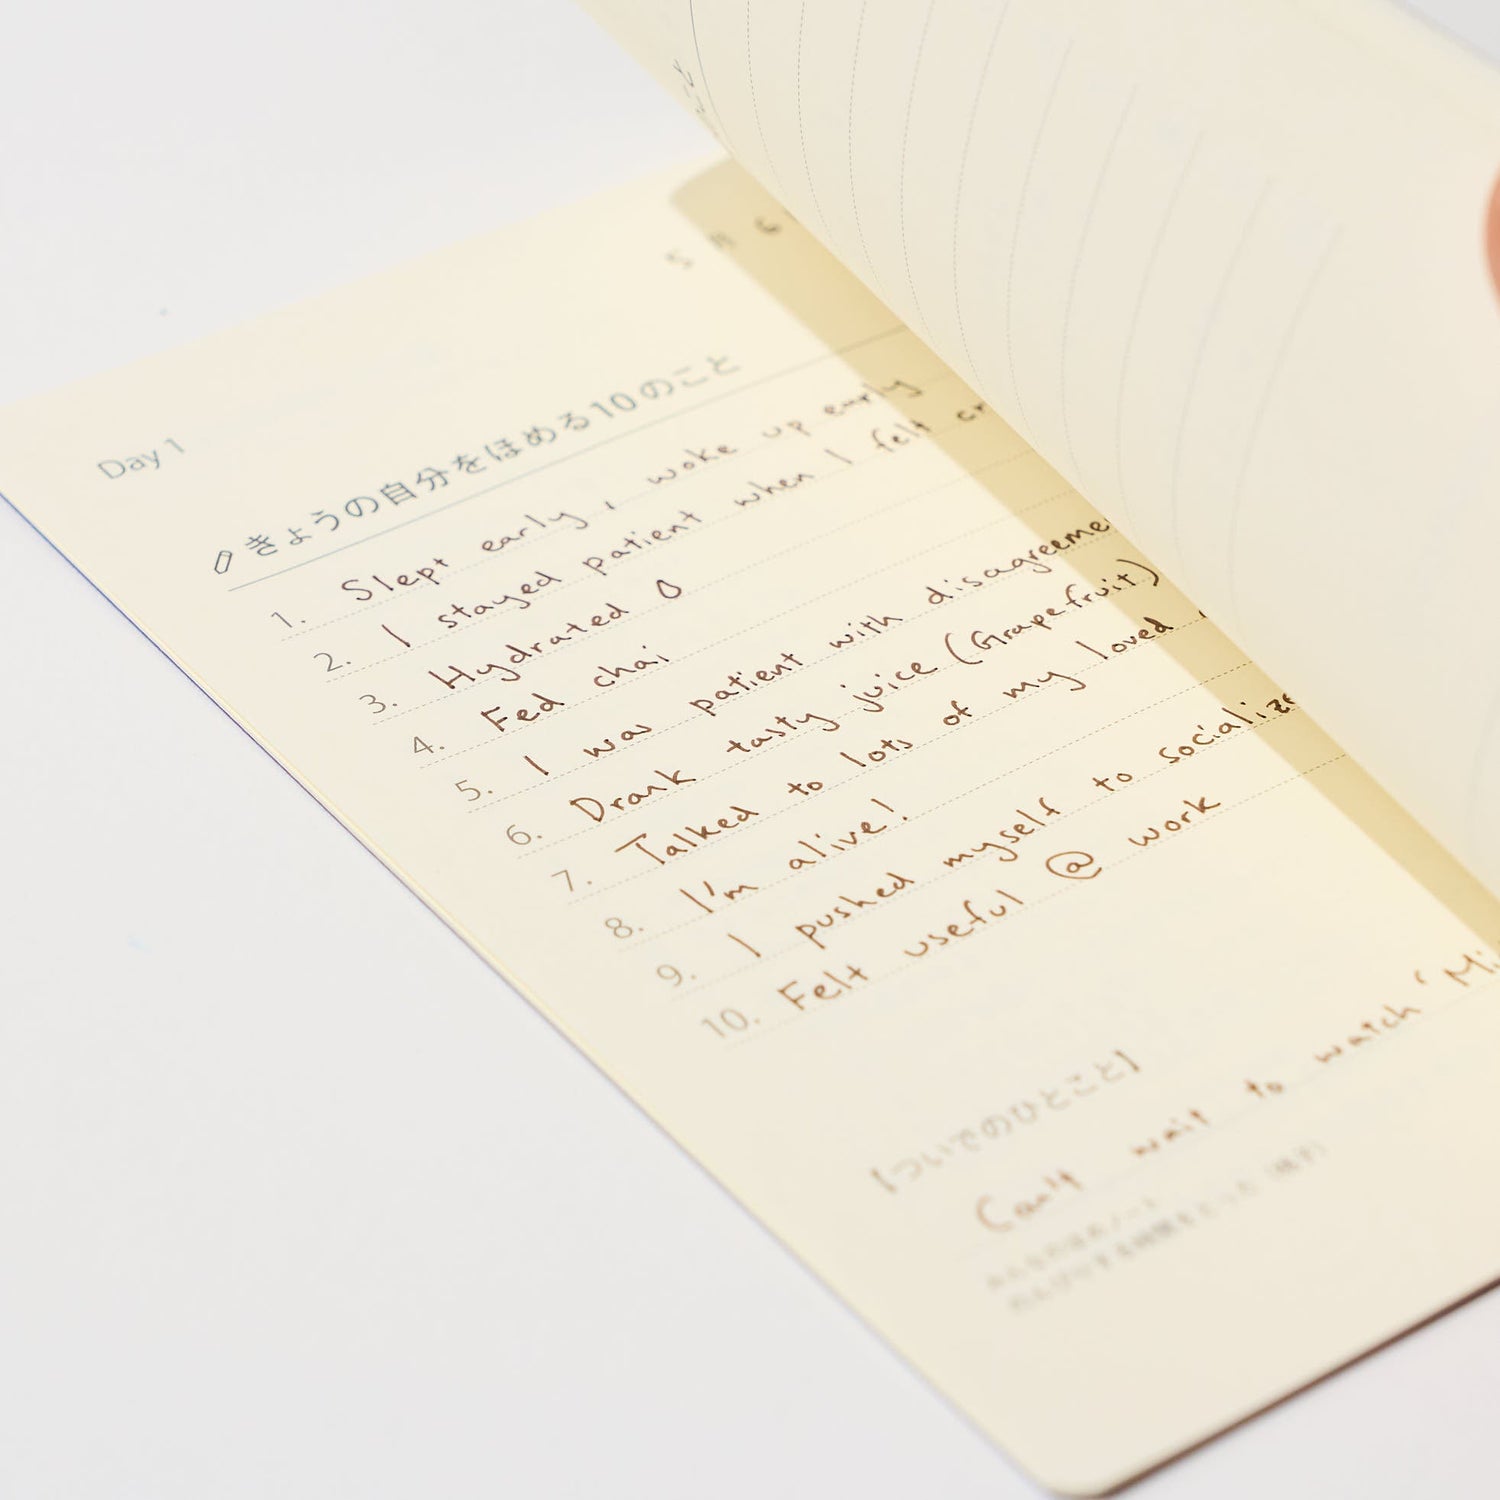 5月6
Day 1
きょうの自分をほめる10のこと
1. Slept early, woke up early
2. I stayed patient when I felt
3. Hydrated
4. Fed chai
5. I was patient with
6. Drank tasty juice (Grapefruit)
7. Talked to lots of my loved
8. I'm alive!
9. I pushed myself to
10. Felt useful @ work
【ついでのひとこと】
Can't wait to watch '